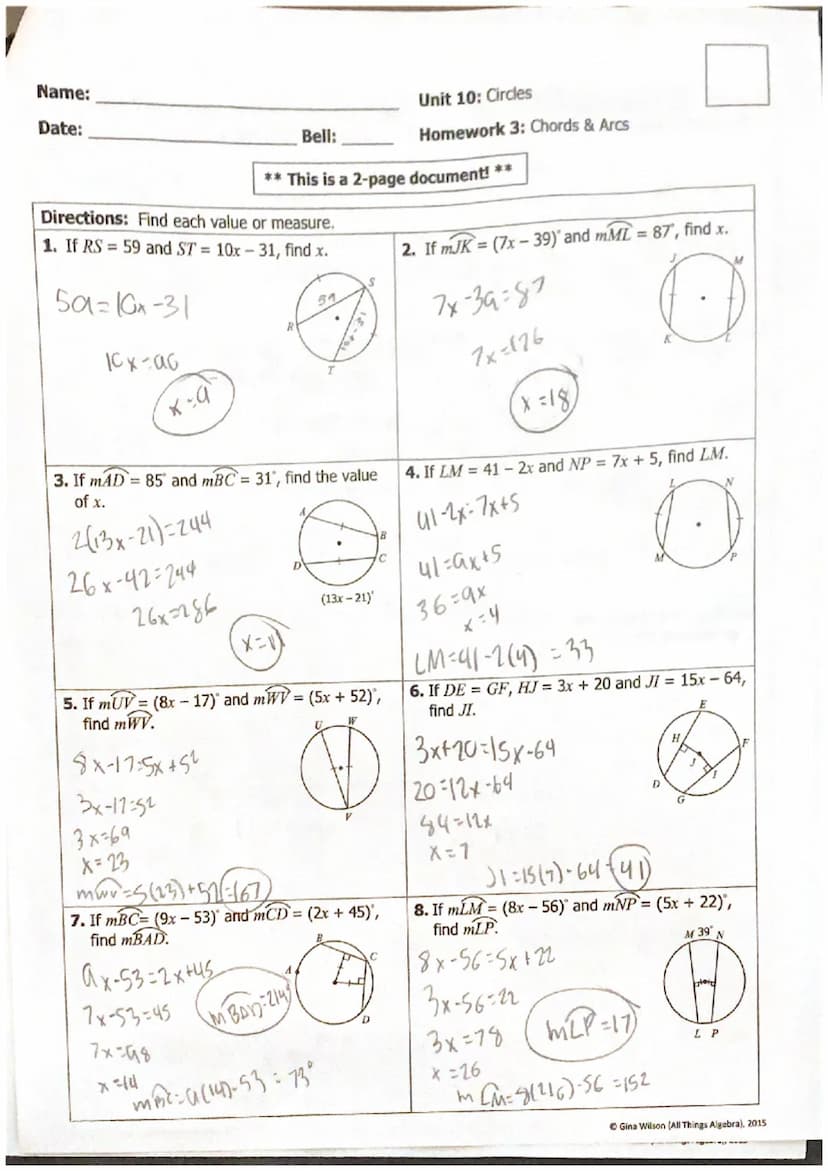 Name:
Unit 10: Circles
Date:
Bell:
Homework 3: Chords & Arcs
** This is a 2-page document! **
Directions: Find each value or measure.
1. If RS = 59 and ST = 10x – 31, find x.
59=10x-31
10x=90
x=9
S
59
R
10x-31
T
2. If mJK = (7x – 39)° and mML = 87°, find x.
7x-39=87
7x=126
x=18
J
M
K
L
3. If mAD = 85° and mBC = 31°, find the value
of x.
2(13x-21)=244
26x-42=244
26x=286
x=11
A
B
D
C
(13x – 21)°
4. If LM = 41 – 2x and NP = 7x + 5, find LM.
41-2x=7x+5
41=9x+5
36=9x
x=4
LM=41-2(4)=33
L
N
M
P
5. If mUV = (8x – 17)° and mWV = (5x + 52)°,
find mWV.
8x-17=5x+52
3x-17=52
3x=69
x=23
mWV=5(23)+52=167
U
W
V
6. If DE = GF, HJ = 3x + 20 and JI = 15x – 64,
find JI.
3x+20=15x-64
20=12x-64
84=12x
x=7
JI=15(7)-64=41
E
H
F
J
I
D
G
7. If mBC= (9x – 53)° and mCD = (2x + 45)°,
find mBAD.
9x-53=2x+45
7x-53=45
7x=98
x=14
mBC=9(14)-53=73°
mBAD=214°
B
C
A
D
8. If mLM = (8x – 56)° and mNP = (5x + 22)°,
find mLP.
8x-56=5x+22
3x-56=22
3x=78
x=26
mLM=8(26)-56=152
mLP=17
M 39° N
L P
© Gina Wilson (All Things Algebra), 2015